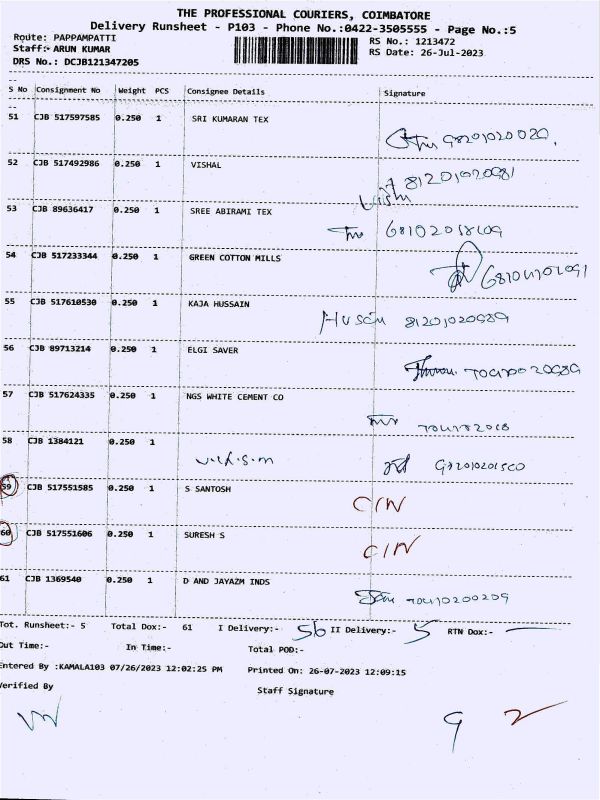 THE PROFESSIONAL COURIERS, COIMBATORE
Delivery Runsheet - P103 - Phone No.:0422-3505555 - Page No.:5
Route: PAPPAMPATTI RS No.: 1213472
Staff:- ARUN KUMAR RS Date: 26-Jul-2023
DRS No.: DCJB121347205
S No Consignment No Weight PCS Consignee Details Signature
51 CJB 517597585 0.250 1 SRI KUMARAN TEX
52 CJB 517492986 0.250 1 VISHAL
53 CJB 89636417 0.250 1 SREE ABIRAMI TEX
54 CJB 517233344 0.250 1 GREEN COTTON MILLS
55 CJB 517610530 0.250 1 KAJA HUSSAIN
56 CJB 89713214 0.250 1 ELGI SAVER
57 CJB 517624335 0.250 1 NGS WHITE CEMENT CO
58 CJB 1384121 0.250 1
59 CJB 517551585 0.250 1 S SANTOSH CIN
60 CJB 517551606 0.250 1 SURESH S CIN
61 CJB 1369540 0.250 1 D AND JAYAZM INDS
Tot. Runsheet:- 5 Total Dox:- 61 I Delivery:- 56 II Delivery:- 5 RTN Dox:-
Out Time:- In Time:- Total POD:-
Entered By :KAMALA103 07/26/2023 12:02:25 PM Printed On: 26-07-2023 12:09:15
Verified By Staff Signature
9 2